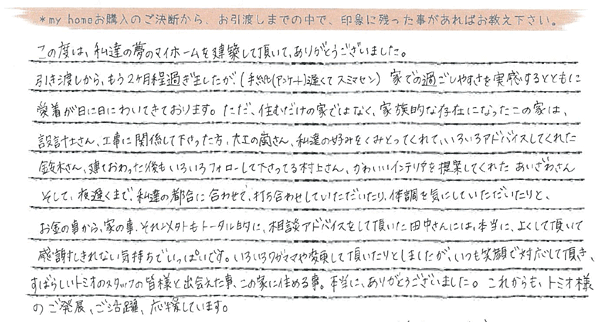 *my homeお購入のご決断から、お引渡しまでの中で、印象に残った事があればお教え下さい。
この度は、私達の夢のマイホームを建築して頂いて、ありがとうございました。
引き渡しから、もう2ヶ月程過ぎましたが(手紙(アンケート)遅くて スミマセン) 家での過ごしやすさを実感するとともに
愛着が日に日にわいてきております。ただ、住むだけの家ではなく、家族的な存在になったこの家は、
設計士さん、工事に関係して下さった方、大工の南さん、私達の好みをくみとってくれて、いろいろアドバイスしてくれた
鈴木さん、建ておわった後もいろいろフォローして下さってる村上さん、かわいいインテリアを提案してくれた あいざわさん
そして、夜遅くまで、私達の都合に合わせて、打ち合わせしていただいたり、体調を気にしていただいたりと、
お金の事から、家の事、それ以外もトータル的に、相談アドバイスをして頂いた田中さんには、本当に、よくして頂いて
感謝しきれない気持ちでいっぱいです。いろいろワガママや変更して頂いたりとしましたが、いつも笑顔で対応して頂き、
すばらしいトミオのスタッフの皆様と出会えた事、この家に住める事。本当に、ありがとうございました。これからも、トミオ様
のご発展、ご活躍、応援しています。